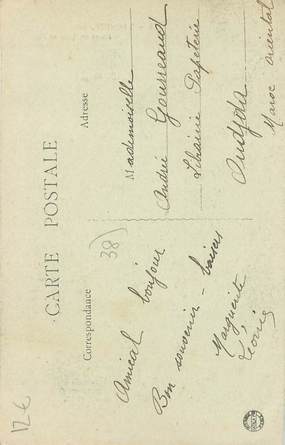 CARTE POSTALE
Correspondance
Adresse
Amical bonjour
Bon souvenir - baisers
Marguerite
Léonie
Mademoiselle
Andrée Gousseaud
Librairie Papeterie
Oudjda
Maroc oriental
38)
12 €